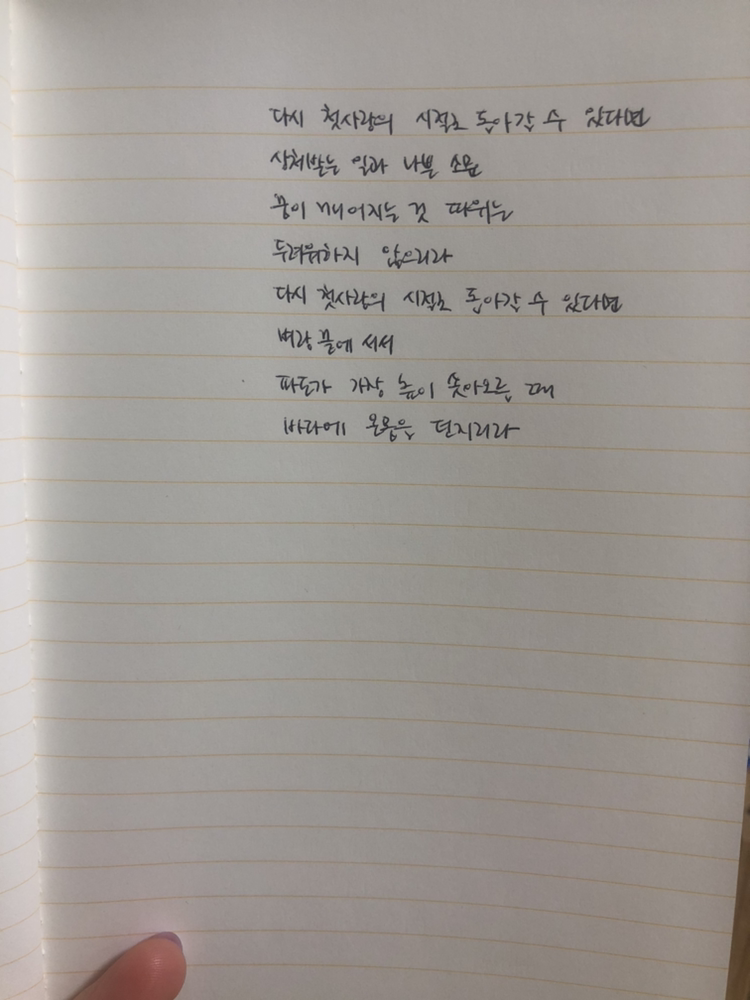 다시 첫사랑의 시절로 돌아갈 수 있다면
상처받는 일과 나쁜 소문
꿈이 깨어지는 것 따위는
두려워하지 않으리라
다시 첫사랑의 시절로 돌아갈 수 있다면
벼랑 끝에 서서
파도가 가장 높이 솟아오를 때
바다에 온몸을 던지리라